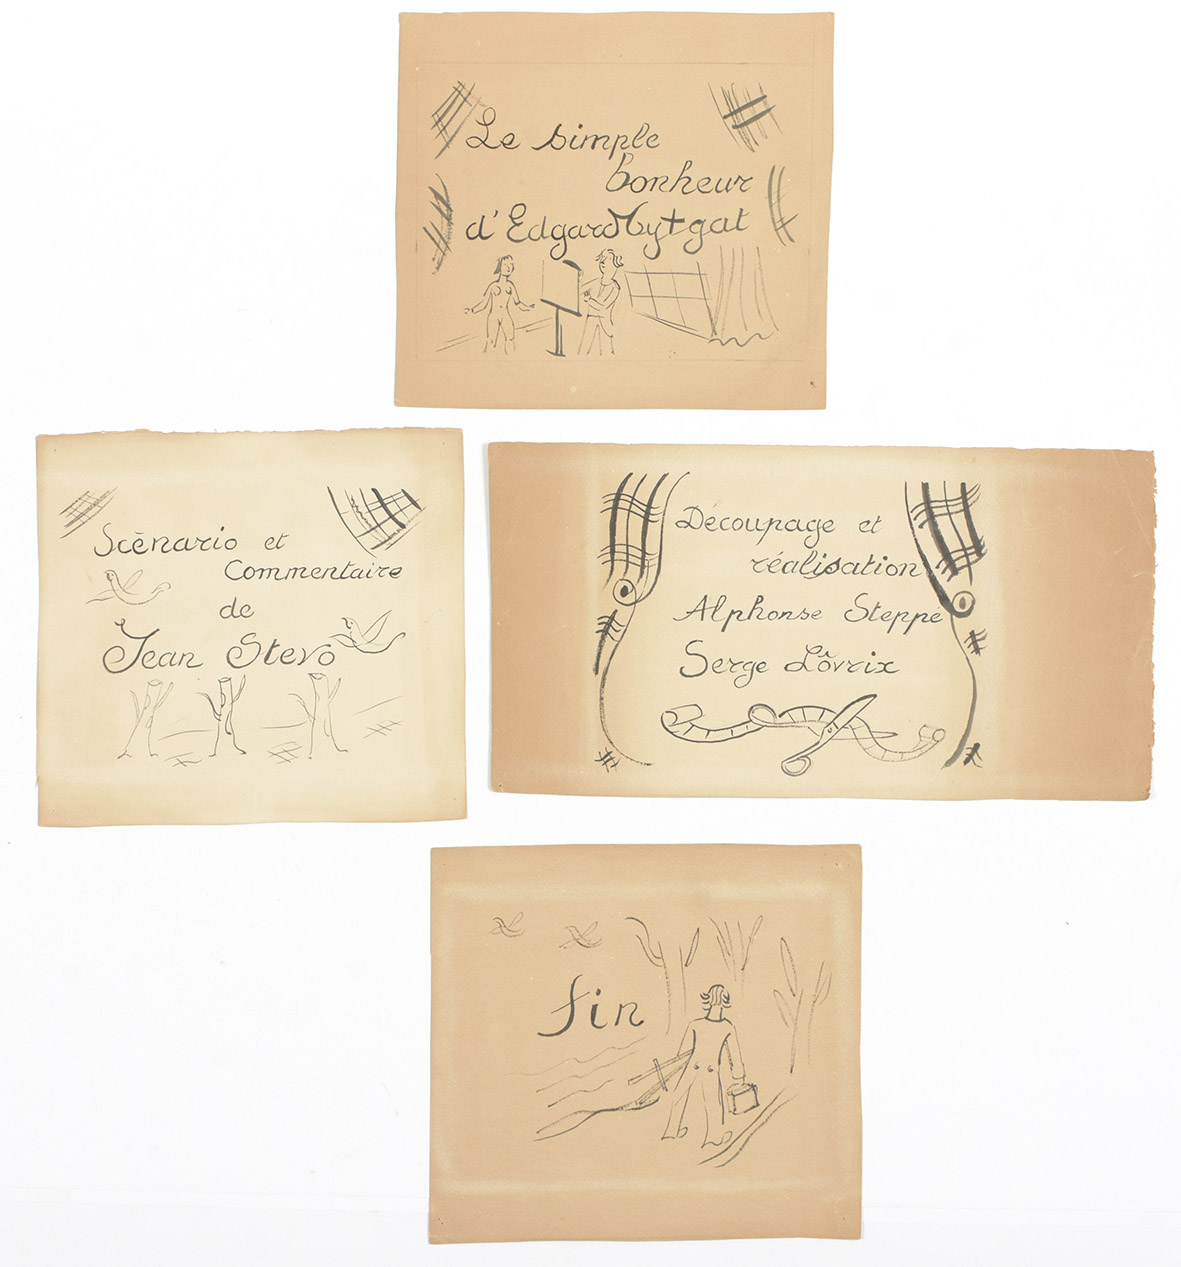 Le simple
bonheur
d'Edgard Mytgat
Scènario et
Commentaire
de
Jean Stevo
Découpage et
réalisation
Alphonse Steppé
Serge Lôvrix
fin